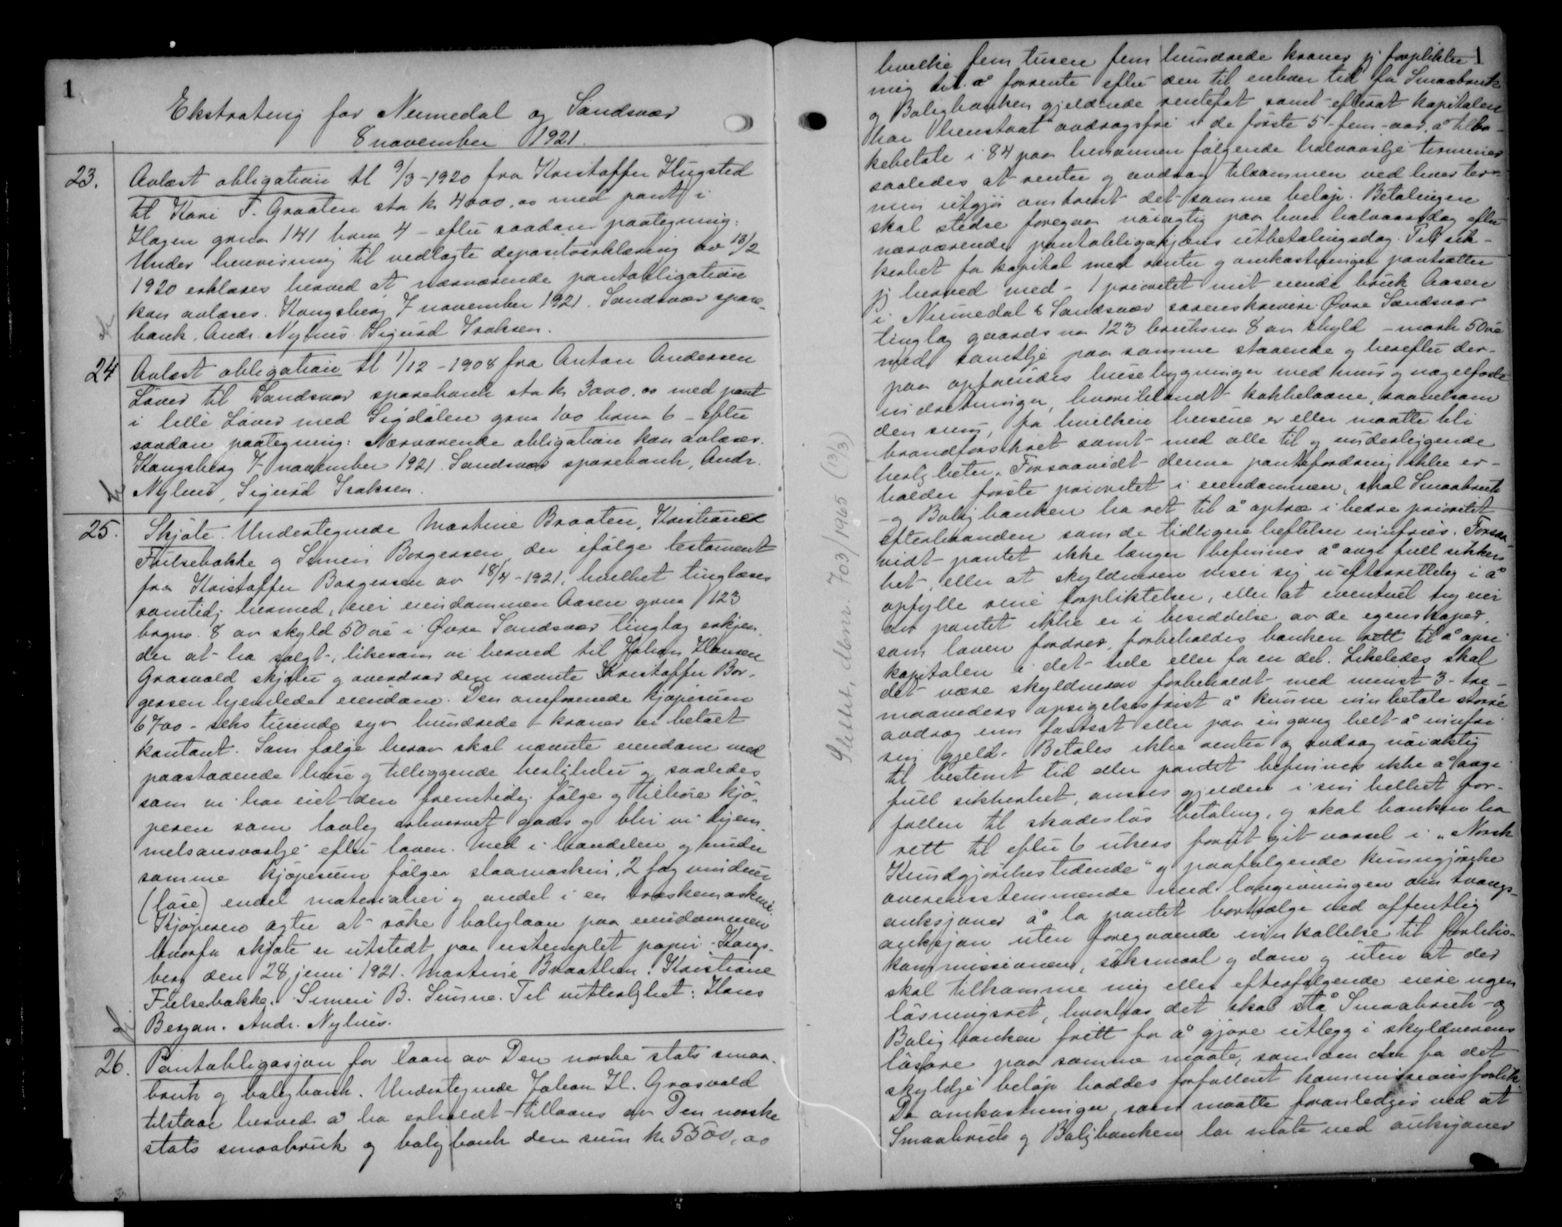 1
Ekstrating for Numedal og Sandsvær
8 november 1921.
23. Avlæst obligation tl 9/3-1920 fra Kristoffer Hugsted
til Kari T. Graaten sto kr 4000.00 med pant i
Hagen grno 141 brno 4 - efter saadan paategning:
Under henvisning til vedlagte depositoerklæring av 13/2
1920 erklæres herved at nærværende pantobligation
kan avlæses. Kongsberg 7 november 1921. Sandsvær spare-
bank. Andr. Nyhus Sigurd Isaksen.
24 Avlæst obligation tl 1/12-1908 fra Anton Andersen
Løver til Sandsvær sparebank sto kr 3000.00 med pant
i lille Løver med Sigdølen grno 100 brno 6 - efter
saadan paategning: Nærværende obligation kan avlæses.
Kongsberg 7 november 1921. Sandsvær sparebank, Andr.
Nyhus, Sigurd Isaksen.
25. Skjøte. Undertegnede Martine Braaten, Kristiane
Fulsebakke og Simen Borgersen, der ifølge testament
fra Kristoffer Borgersen av 18/4-1921, hvilket tinglæses
samtidig hermed, eier eiendommen Aasen grno 123
brgno. 8 av skyld 50 øre i Øvre Sandsvær tinglag erkjen-
der at ha solgt, likesom vi herved til Johan Hansen
Grosvold skjøter og overdrar den nævnte Kristoffer Bor-
gersen hjemlede eiendom. Den omforenede kjøpesum
6700 - seks tusinde syv hundrede - kroner er betalt
kontant. Som følge herav skal nævnte eiendom med
paastaaende huse og tilliggende herligheter og saaledes
som vi har eiet den fremtidig følge og tilhøre kjø-
peren som lovlig erhvervet gods og blir vi hjem-
melsansvarlige efter loven. Med i handelen og under
samme kjøpesum følger slaamaskin, 2 fag vinduer
(løse) endel materialier og andel i en træskemaskine.
Kjøperen agter at søke boliglaan paa eiendommen
hvorfor skjøte er utstedt paa ustemplet papir. Kongs-
berg den 28 juni 1921. Martine Braathen. Kristiane
Fulsebakke. Simen B. Sunne. Til vitterlighet: Hans
Bergan. Andr. Nyhus.
26. Pantobligasjon for laan av Den norske stats smaa-
bruk og boligbank. Undertegnede Johan H. Grosvold
tilstaar herved å ha erholdt tillaans av Den norske
stats smaabruk og boligbank den sum kr 5500,00
Slettet, dbnr. 703/1965 (13/3)
1
hvilke fem tusen fem hundrede kroner jeg forplikter
mig til å forrente efter den til enhver tid for Smaabruk
og Boligbanken gjeldende rentefot samt efterat kapitalen
har henstaat avdragsfri i de første 5 - fem - aar, å tilba-
kebetale i 84 paa hinannen følgende halvaarlige terminer
saaledes at renter og avdrag tilsammen ved hver ter-
min utgjør omtrent det samme beløp. Betalingen
skal stedse foregaa nøiagtig paa hver halvaarsdag efter
nærværende pantobligasjons utbetalingsdag. Til sik-
kerhet for kapital med renter og omkostninger pantsætter
jeg herved med 1 prioritet mit eiende bruk Aasen
i Numedal & Sandsvær sorenskriveri Øvre Sandsvær
tinglag gaards no 123 bruksno 8 av skyld - mark 50 øre
med samtlige paa samme staaende og herefter der-
paa opførendes husebygninger med mur og nagelfaste
indretninger, hvoriblandt kakkelovne, saavelsom
den sum, for hvilken husene er eller maatte bli
brandforsikret samt med alle til og underliggende
herligheter. Forsaavidt denne pantefordring ikke er-
holder første prioritet i eiendommen, skal Smaabruk
og Boligbanken ha ret til å optræ i bedre prioritet
efterhvanden som de tidligere heftelser innfries. Forsaa-
vidt pantet ikke længer befinnes å avgi full sikker-
het, eller at skyldneren viser sig uefterrettelig i å
opfylle sine forpliktelser, eller at eventuel ny eier
av pantet ikke er i besiddelse av de egenskaper,
som loven fordrer, forbeholdes banken rett til å opsi
kapitalen i det hele eller for en del. Likeledes skal
det være skyldneren forbeholdt med minst 3 - tre -
maaneders opsigelsesfrist å kunne innbetale større
avdrag enn fastsat eller paa en gang helt å innfri
sin gjeld. Betales ikke renter og avdrag nøiaktig
til bestemt tid eller pantet befinnes ikke å avgi
full sikkerhet, anses gjelden i sin helhet for-
fallen til skadesløs betaling, og skal banken ha
rett til efter 6 ukers forut git varsel i „Norsk
Kundgjørelsestidende" og paafølgende kunngjørelse
overensstemmende med lovgivningen om tvangs-
auksjoner å la pantet bortsælge ved offentlig
auksjon uten foregaaende innkallelse til forliks-
kommissionen, søksmaal og dom og uten at der
skal tilkomme mig eller efterfølgende eiere nogen
løsningsret, hvorhos det skal stå Smaabruk- og
Boligbanken fritt for å gjøre utlegg i skyldnerens
løsøre paa samme maate, som om der for det
skyldige beløp haddes forfallent kommissionsforlik.
De omkostninger, som maatte foranlediges ved at
Smaabruk og Boligbanken lar møte ved auksjoner